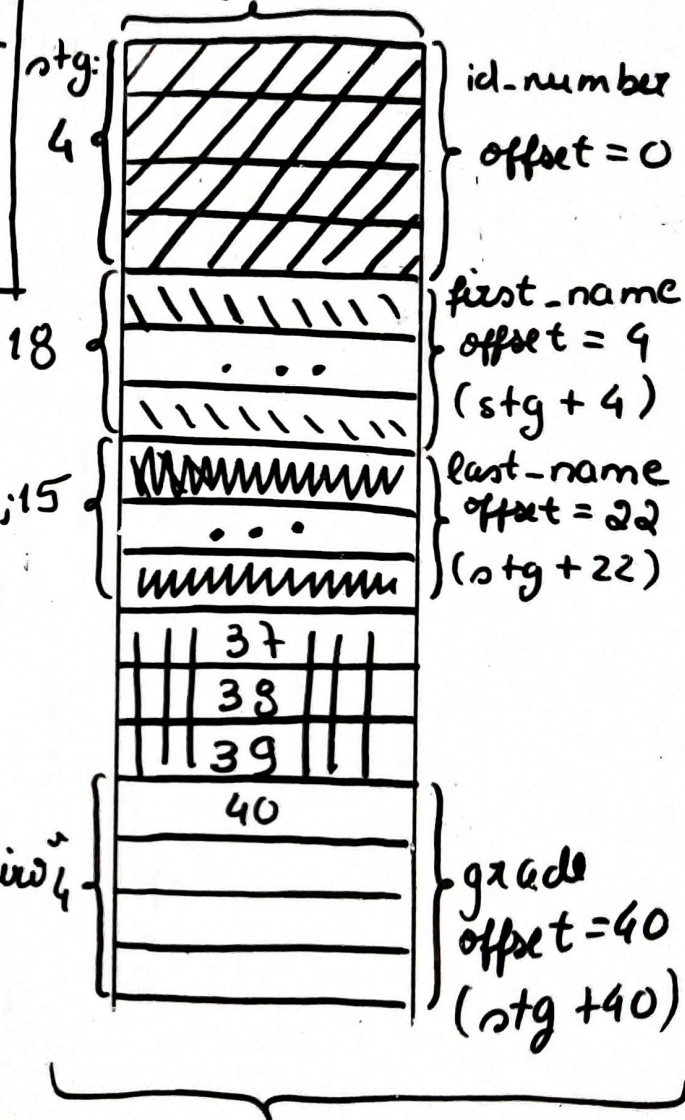 stg:
4
id_number
offset = 0
18
first_name
offset = 4
(stg + 4)
;15
last_name
offset = 22
(stg + 22)
...
...
37
38
39
40
4
grade
offset = 40
(stg + 40)